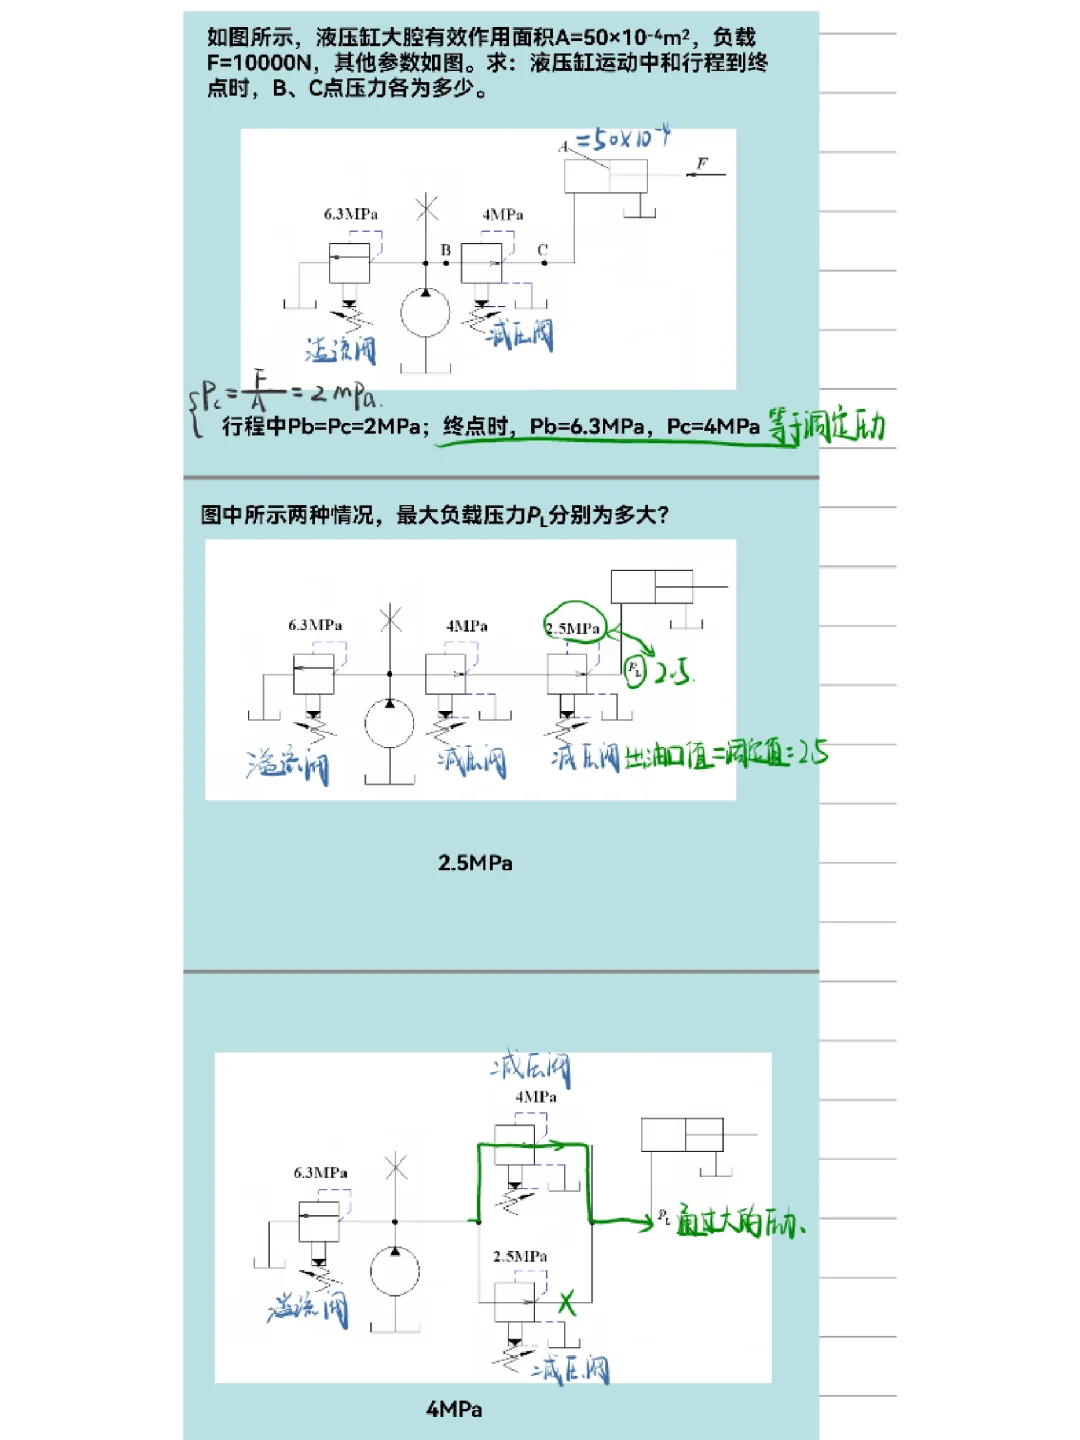 如图所示，液压缸大腔有效作用面积A=50×10⁻⁴m²，负载
F=10000N，其他参数如图。求：液压缸运动中和行程到终
点时，B、C点压力各为多少。
A =50×10⁻⁴
F
6.3MPa
4MPa
B
C
溢流阀
减压阀
Pc=F/A=2mPa.
行程中Pb=Pc=2MPa；终点时，Pb=6.3MPa，Pc=4MPa 等于调定压力
图中所示两种情况，最大负载压力PL分别为多大？
6.3MPa
4MPa
2.5MPa
PL 2.5.
溢流阀
减压阀
减压阀 出油口值=调定值=2.5
2.5MPa
减压阀
4MPa
6.3MPa
PL 通过大的压力、
2.5MPa
×
溢流阀
减压阀
4MPa